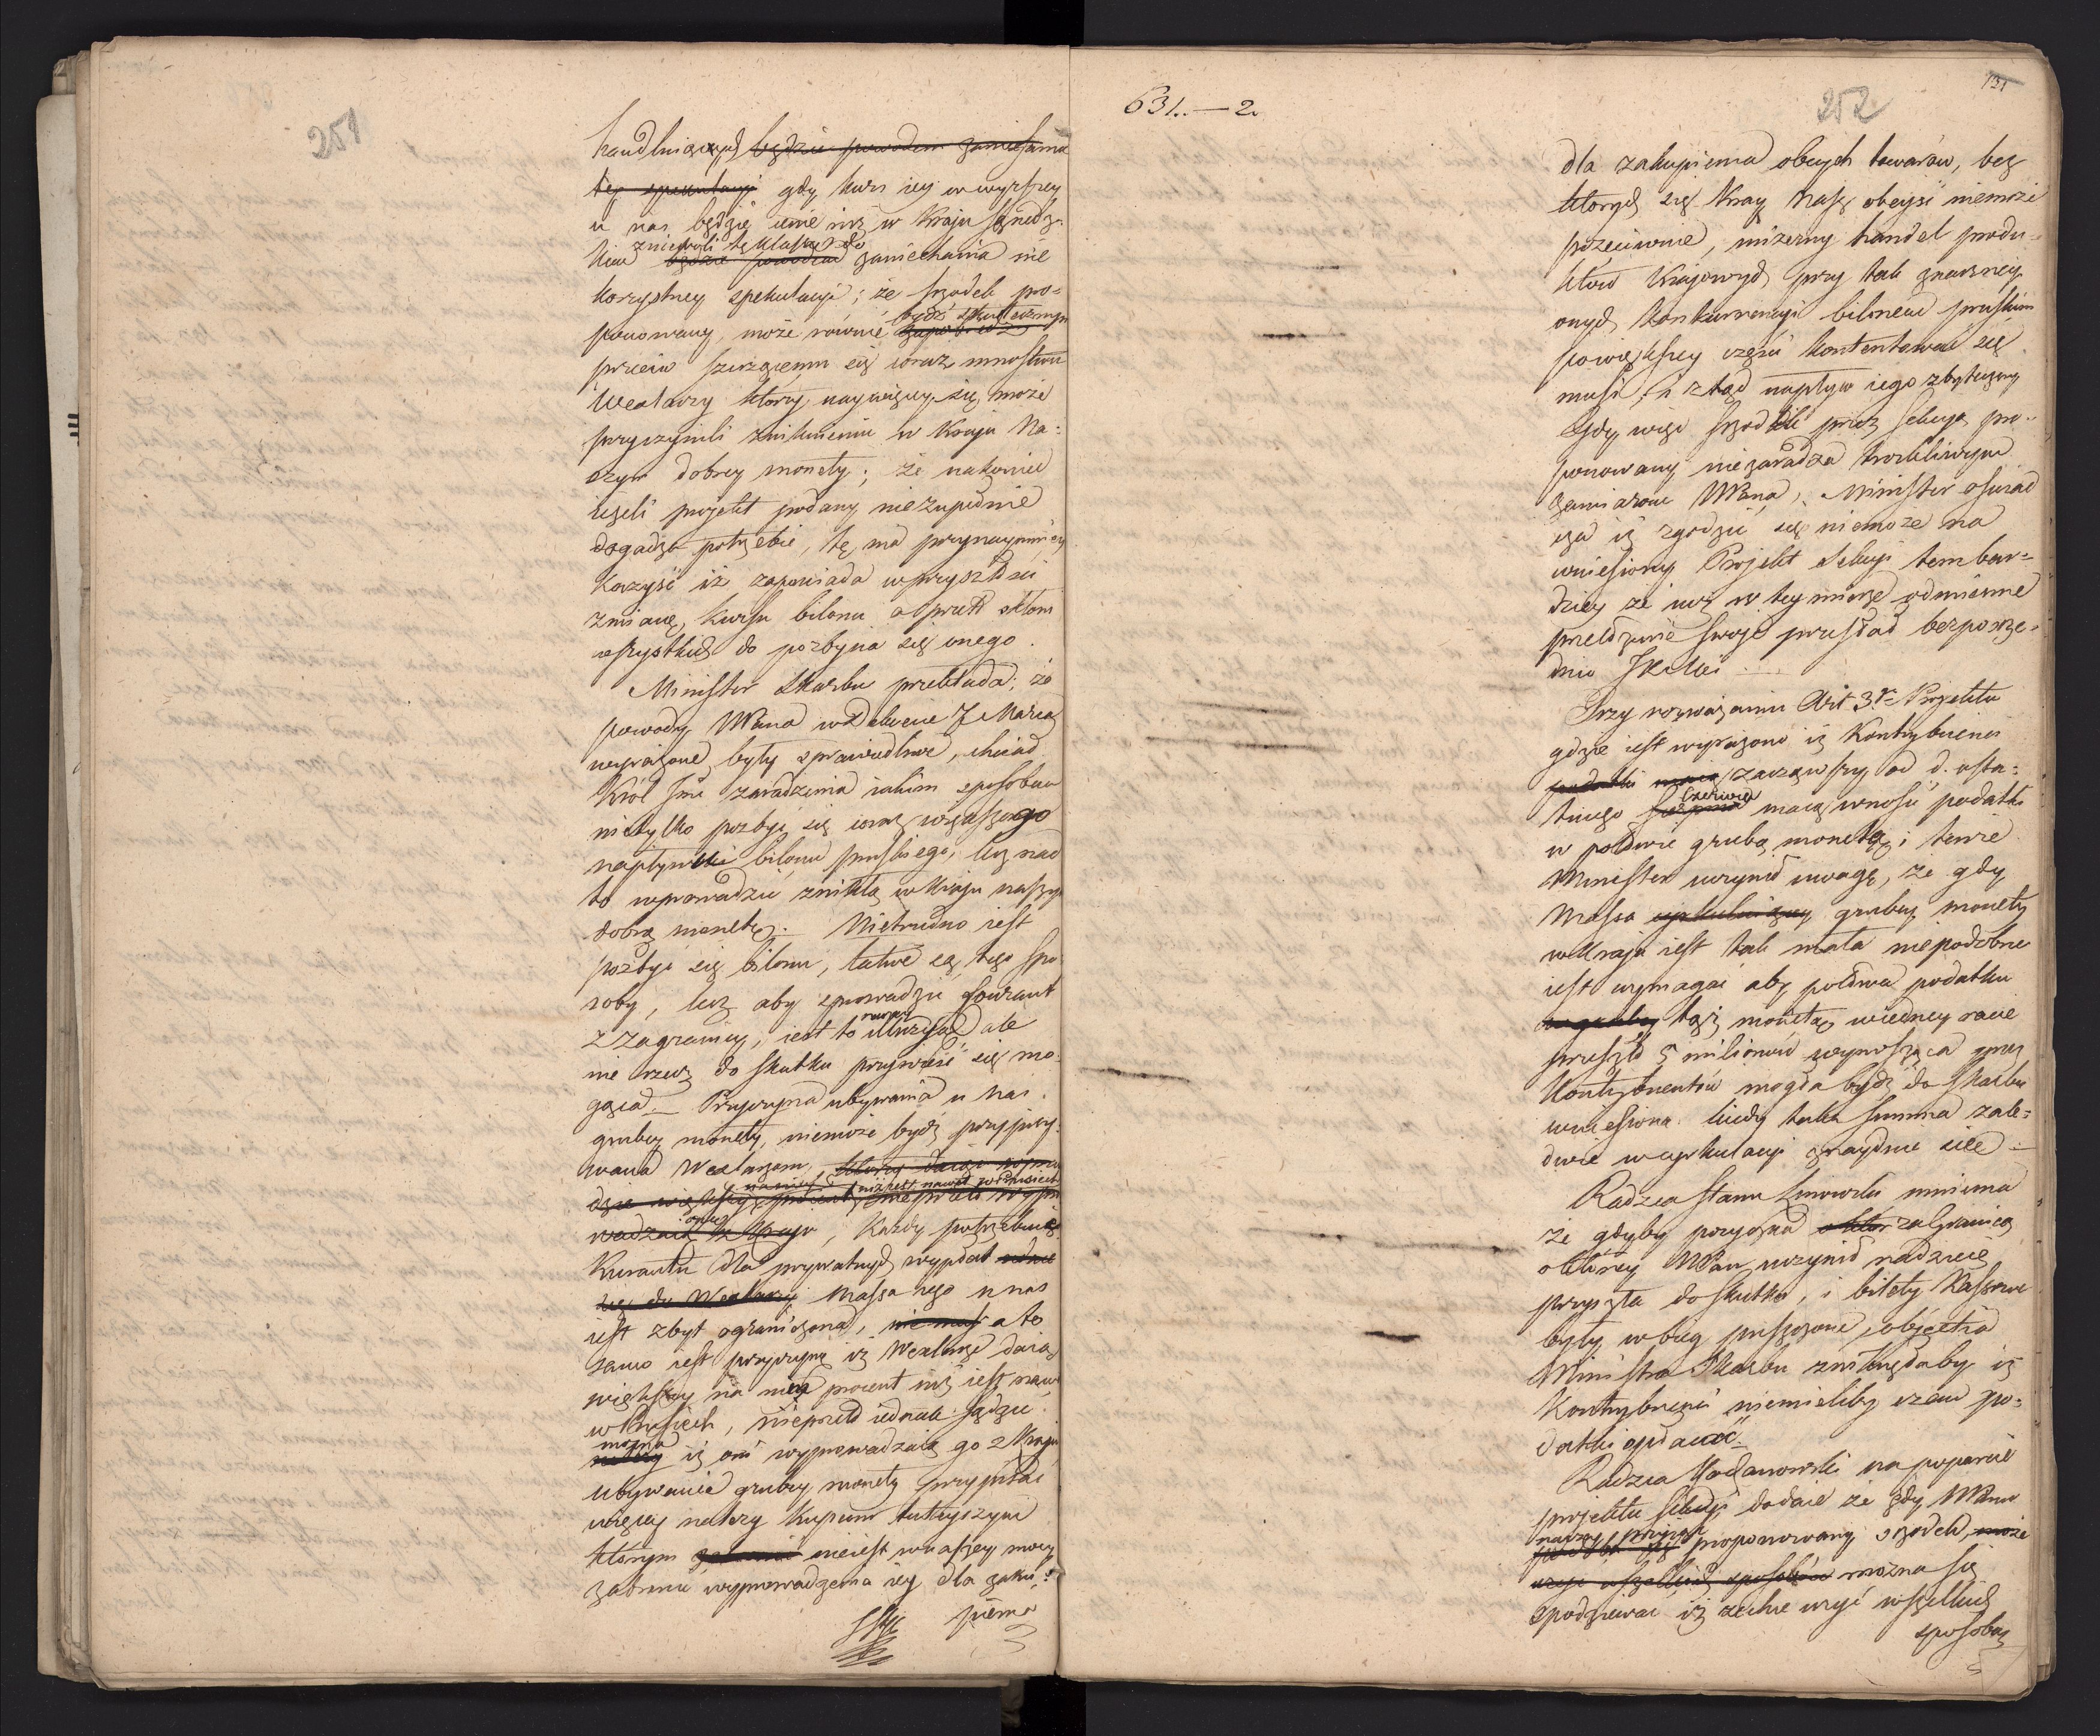 251
handluiących będzie powodem zaniechania
tey spekulacyi gdy kurs iey w wyższey
u nas będzie cenie niż w Kraju sąsiedz-
kim zniewoli tę klassę do będzie powodem zaniechania nie
korzystney spekulacyi; że srzodek pro-
ponowany, może równie bydź skutecznym
przeciw szerzącemu się coraz mnóstwu
Wexlarzy którzy naywięcey się może
przyczynili zniknieniu w Kraju Na-
szym dobrey monety; że nakoniec
ieżeli projekt podany niezupełnie
dogadza potrzebie, tę ma przynaymniey
korzyść iż zapowiada w przyszłości
zmianę kursu bilonu a przeto skłoni
wszystkich do pozbycia się onego.
Minister Skarbu przekłada, że
powody WPana w Dekrecie 7 Marca
wyrażone były sprawiedliwe, chciał
Król Jmć zaradzenia iakim sposobem
nietylko pozbyć się coraz większego
napływu bilonu pruskiego, lecz nad
to wprowadzić znikłą w kraju naszym
dobrą monetę. Nietrudno iest
pozbyć się bilonu, łatwe są tego spo
soby, lecz aby sprowadzić Courant
z zagranicy, iest to illuzya, ale
nie rzecz do skutku przywieść się mo-
gąca. Przyczyna ubywania u nas
grubey monety, niemoże bydź przypisy-
wana Wexlarzom,
niż iest nawet w Prusiech
wadzaią z Kraju, każdy potrzebuiąc
Kurantu dla prywatnych wypłat udaie
się do Wexlarzy massa iego u nas
iest zbyt ograniczona, a to
samo iest przyczyną iż Wexlarze daią
większy na nią procent niż iest naw.
w Prusiech, nieprzeto iednak sądzić
można należy iż oni wyprowadzaią go z Kraju
ubywanie grubey monety przypisać
więcey należy Kupcom tuteyszym
którym nieiest w naszey mocy
zabronić wyprowadzenia iey dla zaku-
pienia
631.—2.
252
131
dla zakupienia obcych towarów, bez
których się Kray nasz obeyść niemoże
przeciwnie, mizerny handel produ-
któw Kraiowych przy tak znaczney
onych konkurrencyi bilonem pruskim
powiększey części kontentować się
musi, i ztąd napływ iego zbyteczny
Gdy więc srzodek przez Sekcyą pro-
ponowany niezaradza troskliwym
zamiarom WPana, Minister oświad
cza iż zgodzić się niemoże na
wniesiony Projekt Sekcyi tembar-
dziey że iuż w tey mierze odmienne
przełożenie swoje przesłał bezposrze-
dnio JKMci
Przy rozważaniu Art 3.go Projektu
gdzie iest wyrażono iż Kontrybuenci
podatki zacząwszy od d. osta-
tniego Czerwca maią wnosić podatki
w połowie grubą monetą; tenże
Minister uczynił uwagę, że gdy
Massa cyrkuluiącey grubey monety
w kraju iest tak mała niepodobne
iest wymagać aby połowa podatku
tąż monetą w iedney racie
przeszło 5 milionów wynosząca przez
Kontrybuentów mogła bydź do Skarbu
wniesiona kiedy taka summa zale-
dwie w cyrkulacyi znayduie się.
Radzca Stanu Linowski mniema
że gdyby pożyczka zagranicą
o któréy WPan uczynił nadzieię
przyszła do skutku, i bilety Kassowe
były w bieg puszczone, objectia
Ministra Skarbu znikłaby iż
Kontrybuenci niemieliby czem po-
datki opłacać.
Radzca Kochanowski na poparcie
projektu Sekcyi dodaie że gdy WPanu
proponowany srzodek, może
użyć wszelkich sposobów można się
spodziewać iż zechce użyć wszelkich
sposobów